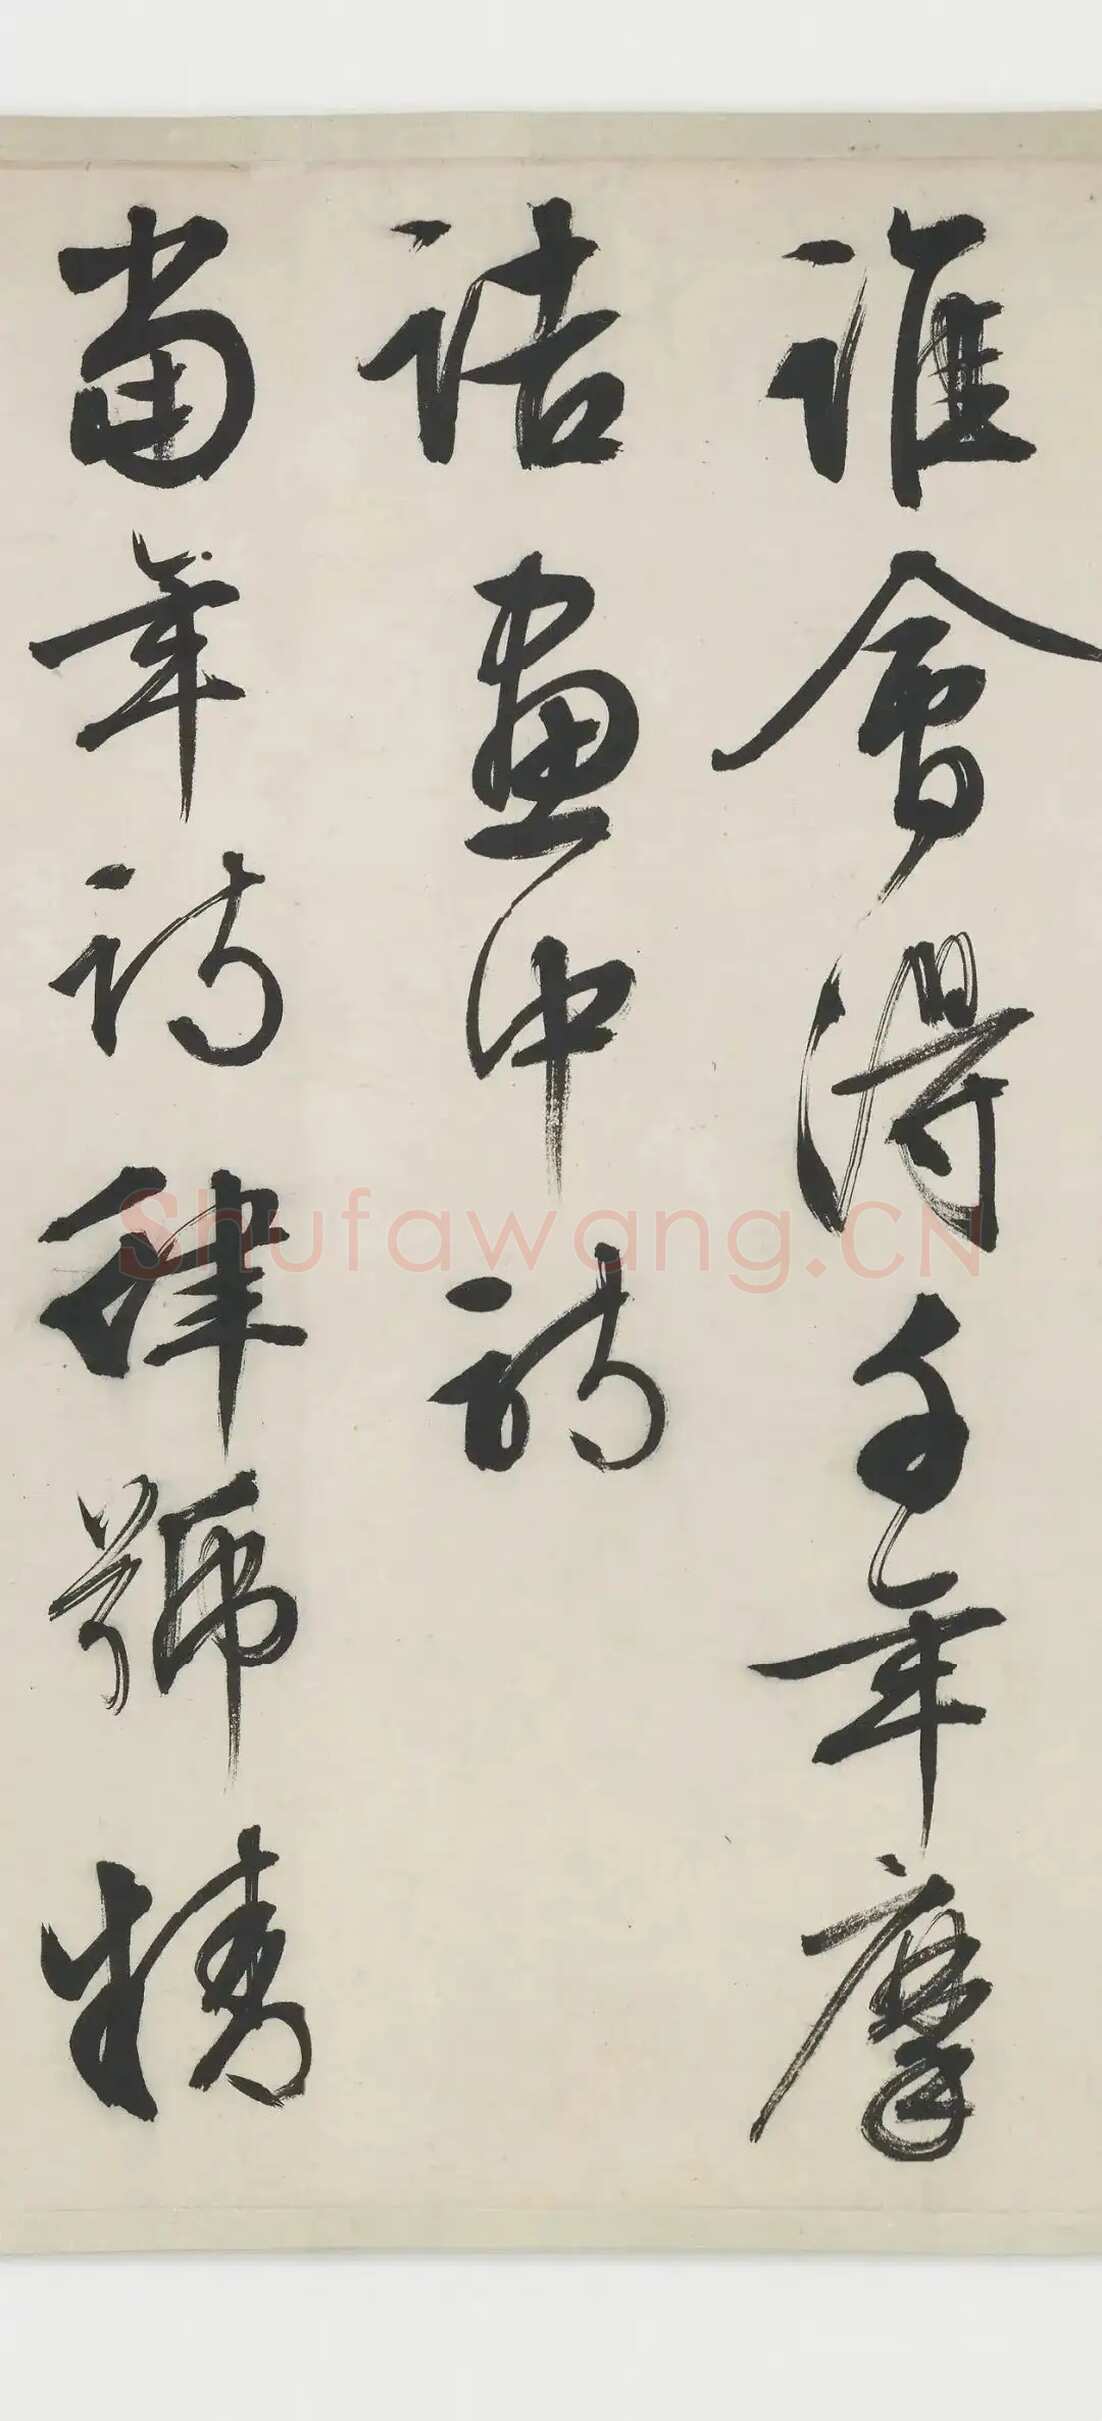 誰會得千年摩
詰畫中詩
當年詩律號精
Shufawang.CN